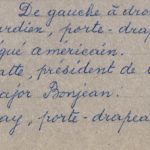 De gauche à dro
rdien, porte-drap
qué américain.
atte, président de l
ajor Bonjean.
ay, porte-drapea